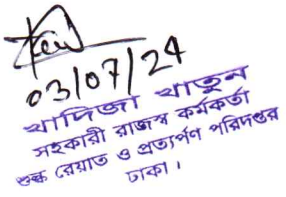 03/07/24
খাদিজা খাতুন
সহকারী রাজস্ব কর্মকর্তা
শুল্ক রেয়াত ও প্রত্যর্পণ পরিদপ্তর
ঢাকা।